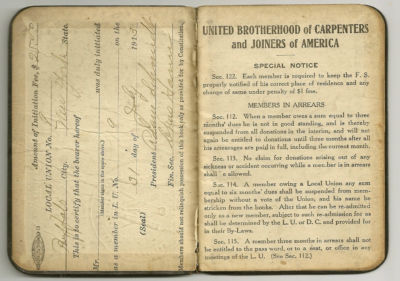 Amount of Initiation Fee, $25.00
LOCAL UNION No. 9
Buffalo City. New York State.
This is to certify that the bearer hereof
Mr.
(Member signs in the space above.)
was duly initiated
as a member in L. U. No. 9 on the
31 day of July 1915
(Seal)
President
Fin. Sec.
Members should not relinquish possession of this book only as provided for by Constitution.
UNITED BROTHERHOOD of CARPENTERS
and JOINERS of AMERICA
SPECIAL NOTICE
Sec. 122. Each member is required to keep the F. S.
properly notified of his correct place of residence and any
change of same under penalty of $1 fine.
MEMBERS IN ARREARS
Sec. 112. When a member owes a sum equal to three
months' dues he is not in good standing, and is thereby
suspended from all donations in the interim, and will not
again be entitled to donations until three months after all
his arrearages are paid in full, including the current month.
Sec. 113. No claim for donations arising out of any
sickness or accident occurring while a member is in arrears
shall be allowed.
Sec. 114. A member owing a Local Union any sum
equal to six months' dues shall be suspended from mem-
bership without a vote of the Union, and his name be
stricken from the books. After that he can be re-admitted
only as a new member, subject to such re-admission fee as
shall be determined by the L. U. or D. C. and provided for
in their By-Laws.
Sec. 115. A member three months in arrears shall not
be entitled to the pass word, or to a seat, or office in any
meetings of the L. U. (See Sec. 112.)